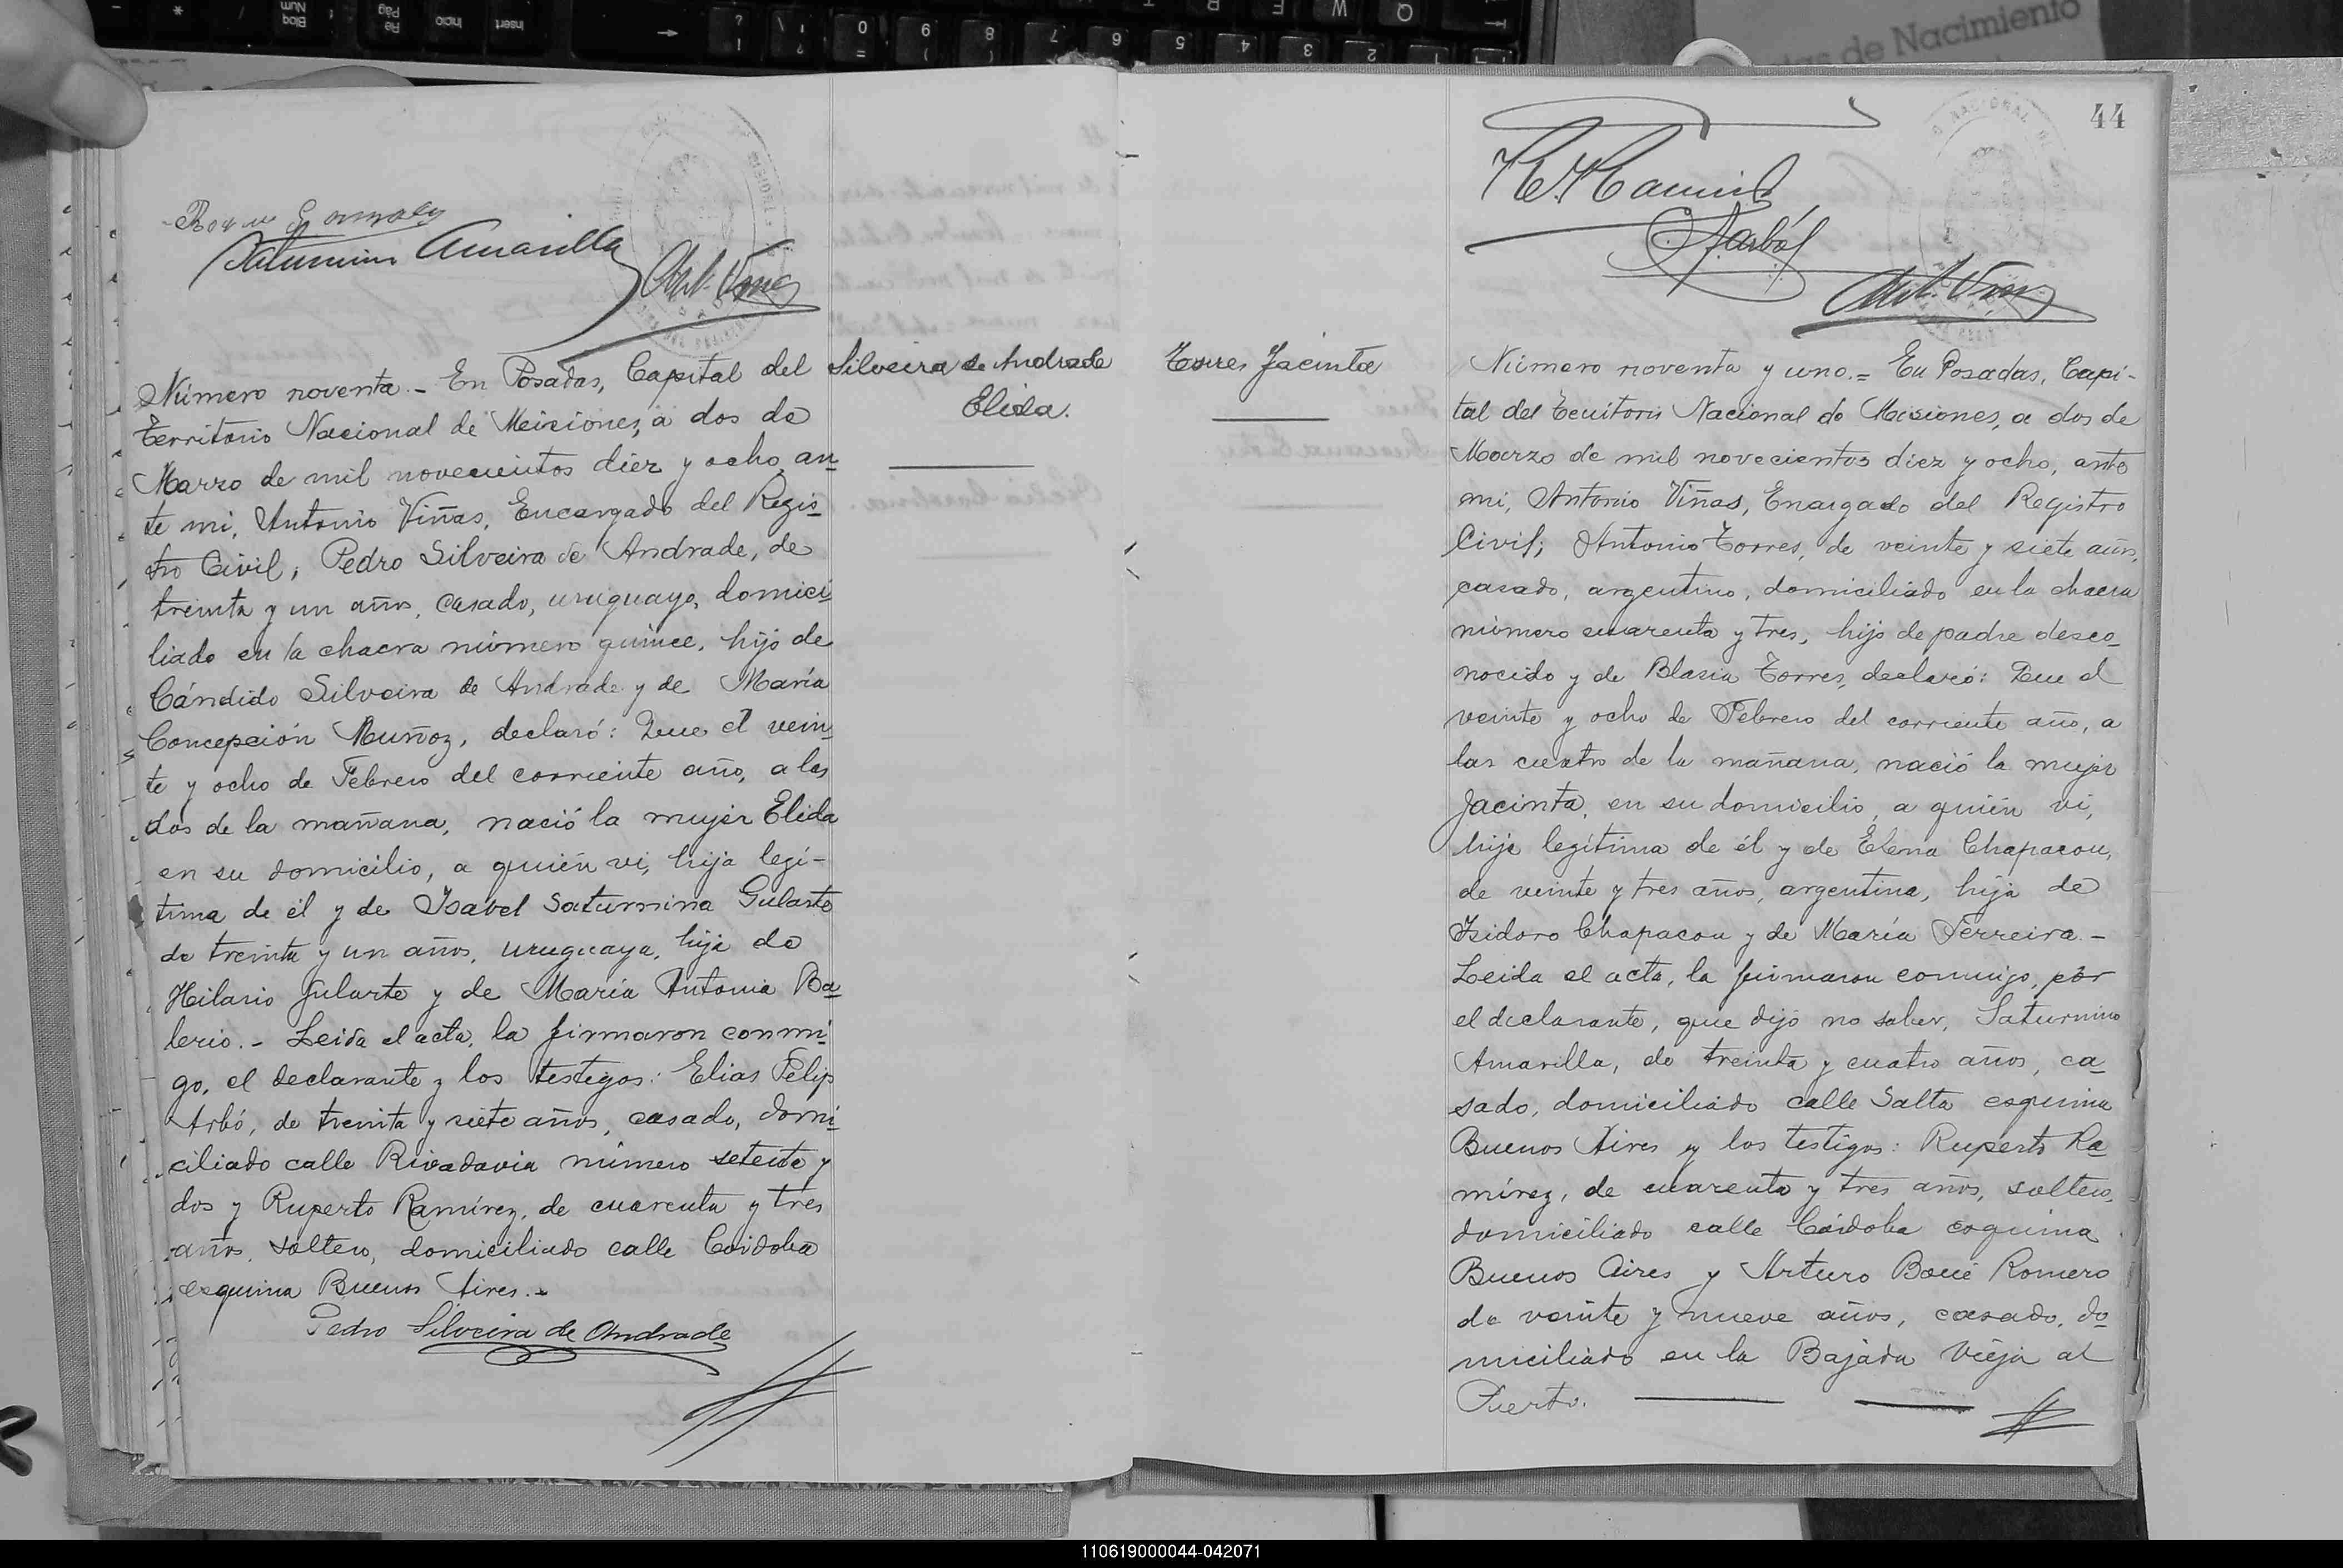 Roque Gonzalez
Saturnino Amarilla
Ant. Viñas
Número noventa.- En Posadas, Capital del
Territorio Nacional de Misiones, a dos de
Marzo de mil novecientos diez y ocho, an-
te mi, Antonio Viñas, Encargado del Regis-
tro Civil; Pedro Silveira de Andrade, de
treinta y un años, casado, uruguayo, domici-
liado en la chacra número quince, hijo de
Cándido Silveira de Andrade y de María
Concepción Muñoz, declaró: Que el vein-
te y ocho de Febrero del corriente año, a las
dos de la mañana, nació la mujer Elida
en su domicilio, a quién vi, hija legí-
tima de él y de Isabel Saturnina Gularte
de treinta y un años, uruguaya, hija de
Hilario Gularte y de María Antonia Ba-
lerio.- Leida el acta, la firmaron conmi-
go, el declarante y los testigos: Elias Felip
Arbó, de treinta y siete años, casado, domi-
ciliado calle Rivadavia número setenta y
dos y Ruperto Ramírez, de cuarenta y tres
años, soltero, domiciliado calle Córdoba
esquina Buenos Aires.-
Pedro Silveira de Andrade
Silveira de Andrade
Elida.
Torres Jacinta
44
R. Ramirez
Ant. Viñas
Número noventa y uno.= En Posadas, Capi-
tal del Territorio Nacional de Misiones, a dos de
Marzo de mil novecientos diez y ocho, ante
mi, Antonio Viñas, Enargado del Registro
Civil; Antonio Torres, de veinte y siete años,
casado, argentino, domiciliado en la chacra
número cuarenta y tres, hijo de padre desco-
nocido y de Blasia Torres, declaró: Que el
veinte y ocho de Febrero del corriente año, a
las cuatro de la mañana, nació la mujer
Jacinta, en su domicilio, a quién vi,
hija legítima de él y de Elena Chapacou,
de veinte y tres años, argentina, hija de
Isidoro Chapacou y de María Ferreira.-
Leida el acta, la firmaron conmigo, por
el declarante, que dijo no saber, Saturnino
Amarilla, de treinta y cuatro años, ca-
sado, domiciliado calle Salta esquina
Buenos Aires y los testigos: Ruperto Ra-
mírez, de cuarenta y tres años, soltero,
domiciliado calle Córdoba esquina
Buenos Aires y Arturo Boué Romero
de veinte y nueve años, casado, do-
miciliado en la Bajada Vieja al
Puerto.
110619000044-042071